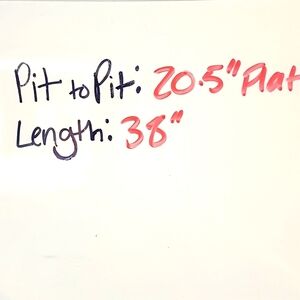 Pit to Pit: 20.5" Flat
Length: 38"